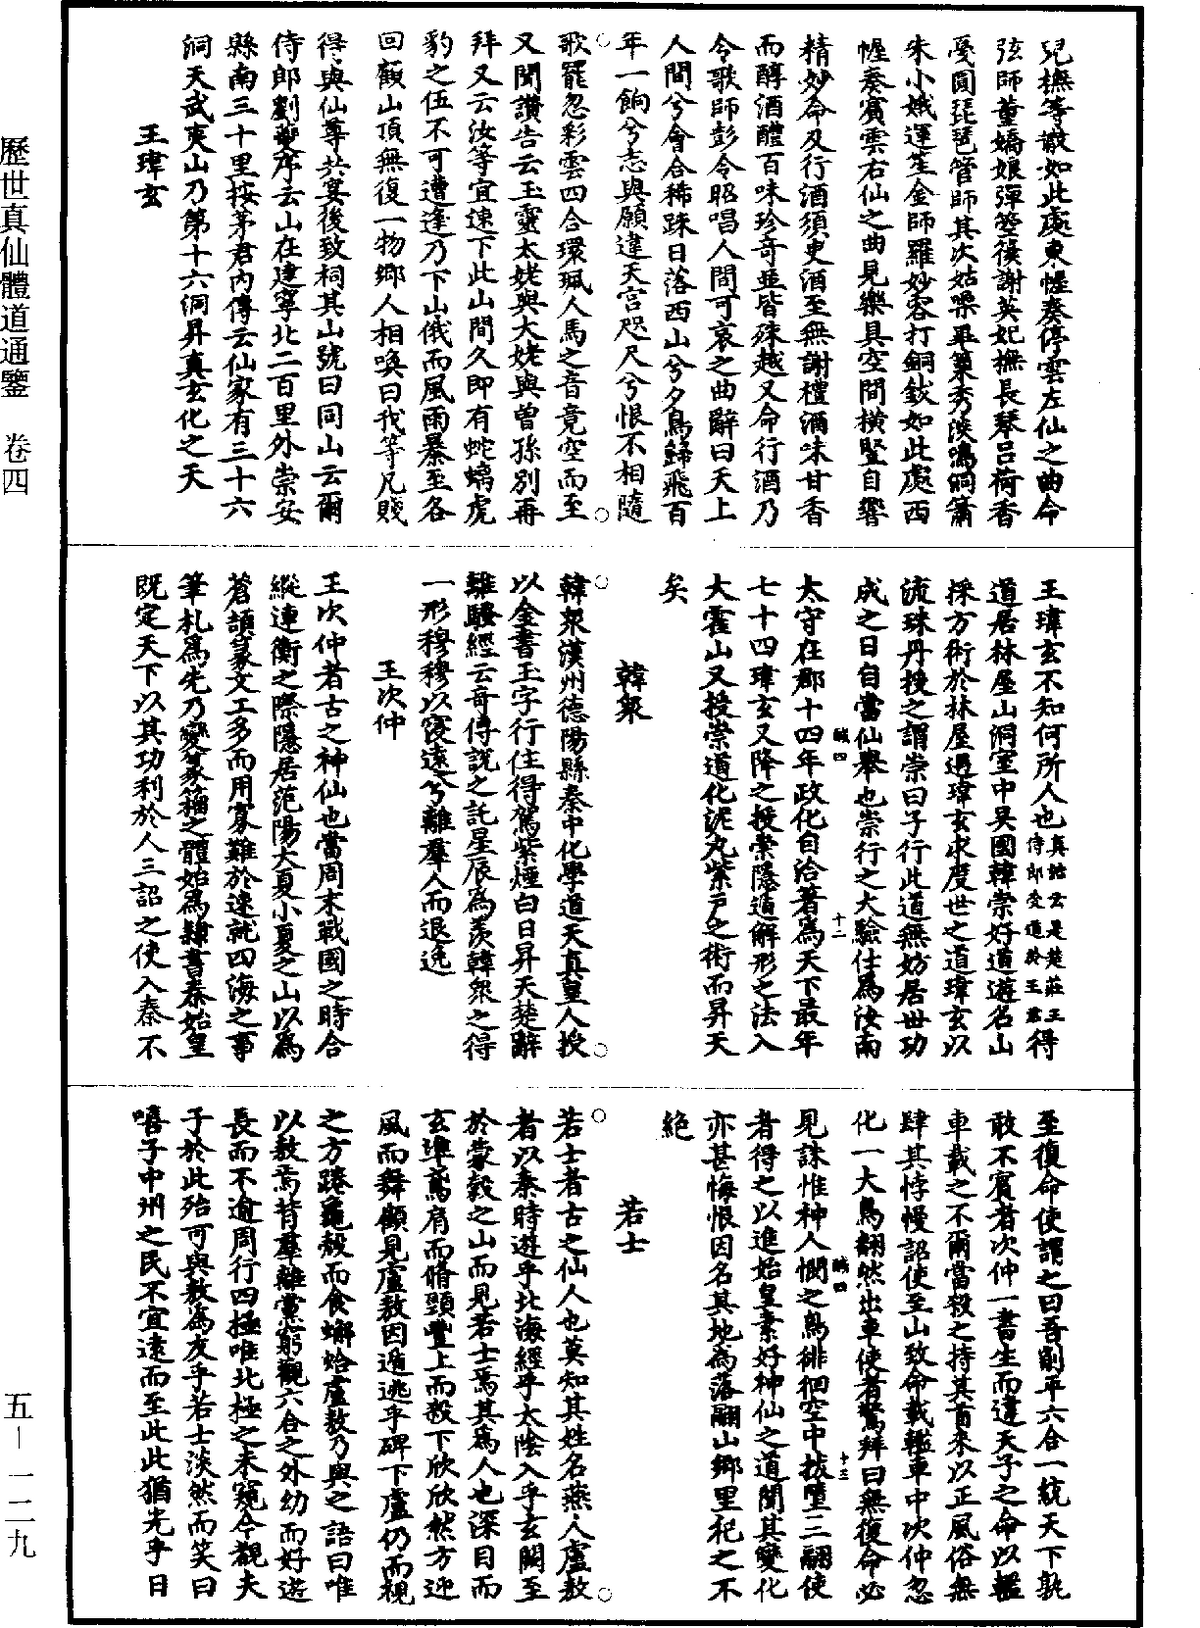 歷世真仙體道通鑒　卷四
兒撫等皷如此處東幄奏停雲左仙之曲命
弦師董嬌娘彈箜篌謝英妃撫長琴呂荷香
戞圓琵琶管師其次姑噪畢篥秀淡鳴洞簫
朱小娥運笙金師羅妙容打銅鈸如此處西
幄奏賓雲右仙之曲見樂具空間橫豎自響
精妙命及行酒須臾酒至無謝禮酒味甘香
而醇酒醴百味珍奇並皆殊越又命行酒乃
令歌師彭令昭唱人間可哀之曲辭曰天上
人間兮會合稀踈日落西山兮夕鳥歸飛百
年一餉兮志與願違天宮咫尺兮恨不相隨
歌罷忽彩雲四合環珮人馬之音竟空而至
又聞讚告云玉靈太姥與大姥與曾孫別再
拜又云汝等宜速下此山間久即有蛇螭虎
豹之伍不可遭逢乃下山俄而風雨暴至各
回顧山頂無復一物鄉人相喚曰我等凡賤
得與仙尊共宴後致祠其山號曰同山云爾
侍郎劉夔序云山在建寧北二百里外崇安
縣南三十里按茅君內傳云仙家有三十六
洞天武夷山乃第十六洞昇真玄化之天
王瑋玄
王瑋玄不知何所人也真誥云是楚莊王侍郎受道於王君得
道居林屋山洞室中吳國韓崇好道遊名山
採方術於林屋遇瑋玄求度世之道瑋玄以
流珠丹授之謂崇曰子行此道無妨居世功
成之日自當仙舉也崇行之大驗仕為汝南
太守在郡十四年政化自洽著為天下最年
七十四瑋玄又降之授崇隱遁解形之法入
大霍山又授崇道化泥丸紫戶之術而昇天
矣
韓衆
韓衆漢州德陽縣秦中化學道天真皇人授
以金書玉字行住得駕紫煙白日昇天楚辭
離騷經云奇傳說之託星辰為羨韓衆之得
一形穆穆以寖遠兮離羣人而退逸
王次仲
王次仲者古之神仙也當周末戰國之時合
縱連衡之際隱居范陽大夏小夏之山以為
蒼頡篆文工多而用寡難於速就四海之事
筆札為先乃變篆籀之體始為隸書秦始皇
既定天下以其功利於人三詔之使入秦不
至復命使謂之曰吾削平六合一統天下孰
敢不賓者次仲一書生而違天子之命以檻
車載之不爾當殺之持其首來以正風俗無
肆其悖慢詔使至山致命載檻車中次仲忽
化一大鳥翻然出車使者驚拜曰無復命必
見誅惟神人憫之鳥徘徊空中拔墮三翮使
者得之以進始皇素好神仙之道聞其變化
亦甚悔恨因名其地為落翮山鄉里祀之不
絕
若士
若士者古之仙人也莫知其姓名燕人盧敖
者以秦時遊乎北海經乎太陰入乎玄闕至
於蒙穀之山而見若士焉其為人也深目而
玄準鳶肩而脩頸豐上而殺下欣欣然方迎
風而舞顧見盧敖因遁逃乎碑下盧仍而視
之方踡龜殻而食蠏蛤盧敖乃與之語曰唯
以敖焉背羣離黨窮觀六合之外幼而好遊
長而不逾周行四極唯北極之未窺今覩夫
子於此殆可與敖為友乎若士淡然而笑曰
嘻子中州之民不宜遠而至此此猶光乎日
鹹四
十二
鹹四
十三
五－一二九